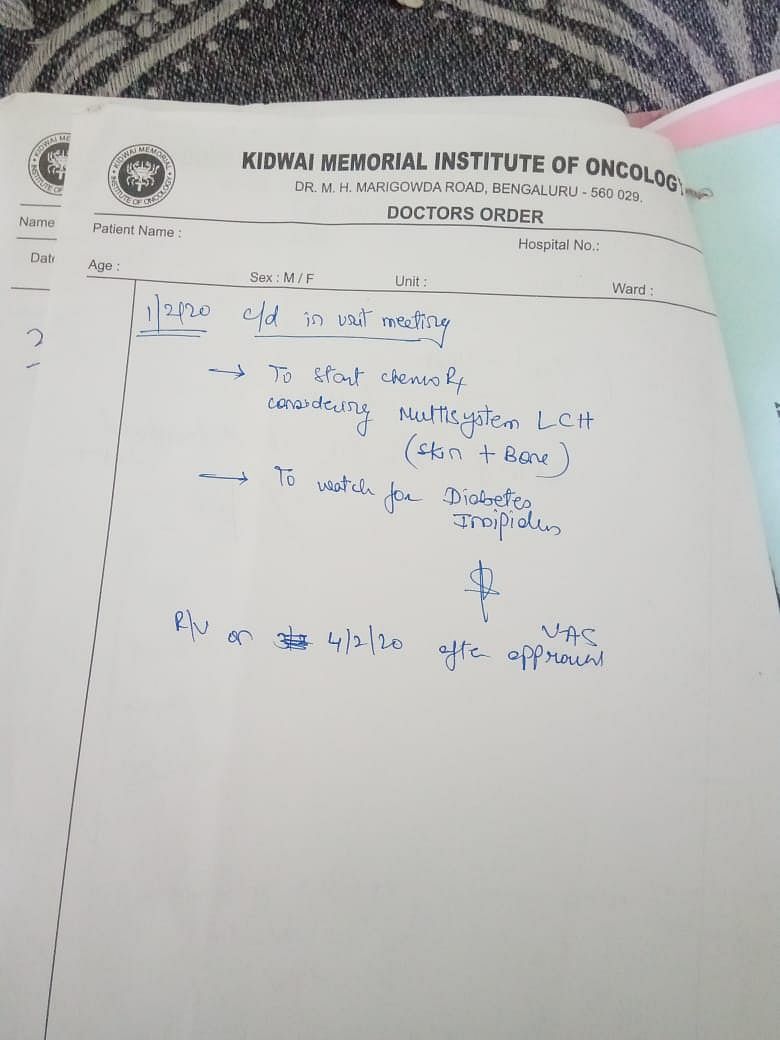 KIDWAI MEMORIAL INSTITUTE OF ONCOLOGY
DR. M. H. MARIGOWDA ROAD, BENGALURU - 560 029.
DOCTORS ORDER
Name
Patient Name :
Hospital No.:
Date
Age :
Sex : M / F
Unit :
Ward :
1/2/20 c/d in unit meeting
→ To start chemo Rx
considering Multisystem LCH
(Skin + Bone)
→ To watch for Diabetes
Insipidus
R/V on 4/2/20 after VAS approval